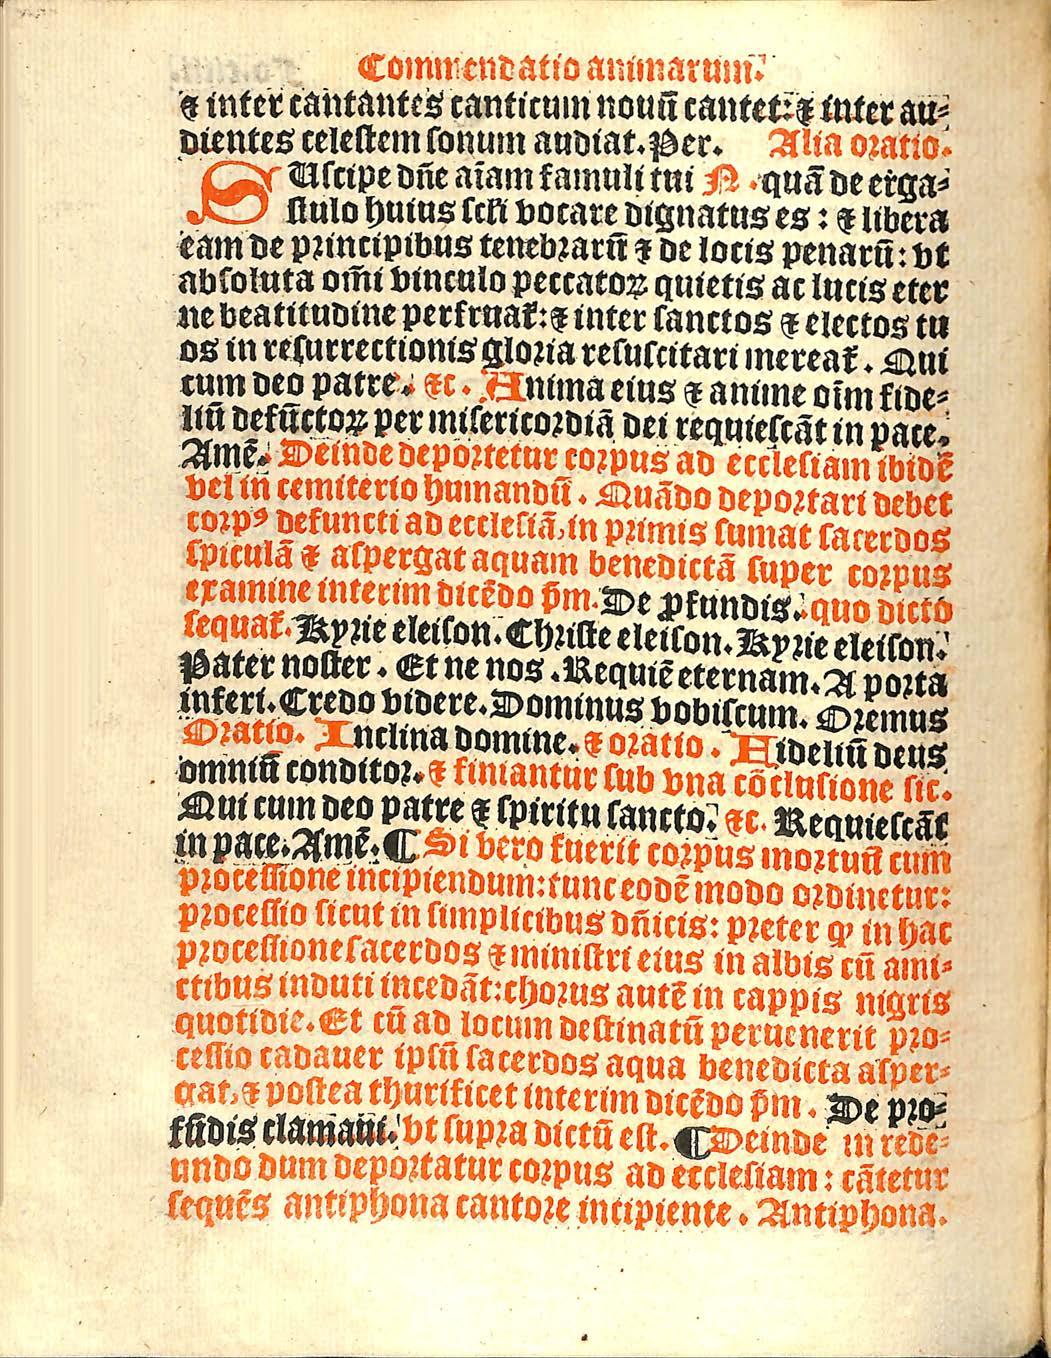 Commendatio animarum.
⁊ inter cantantes canticum nouū cantet: ⁊ inter au⸗
dientes celestem sonum audiat. Per. Alia oratio.
SUscipe dn̄e aīam famuli tui N. quā de erga⸗
stulo huius scl̄i vocare dignatus es : ⁊ libera
eam de principibus tenebrarū ⁊ de locis penarū : vt
absoluta om̄i vinculo peccatoꝝ quietis ac lucis eter
ne beatitudine perfruat᷑ : ⁊ inter sanctos ⁊ electos tu
os in resurrectionis gloria resuscitari mereat᷑ . Qui
cum deo patre. ⁊c. Anima eius ⁊ anime oīm fide⸗
liū defūctoꝝ per misericordiā dei requiescāt in pace.
Amē. Deinde deportetur corpus ad ecclesiam ibidē
vel in cemiterio humandū . Quādo deportari debet
corpꝰ defuncti ad ecclesiā, in primis sumat sacerdos
spiculā ⁊ aspergat aquam benedictā super corpus
examine interim dicēdo p̄m. De ꝓfundis. quo dicto
sequat᷑. Kyrie eleison. Christe eleison. Kyrie eleison.
Pater noster . Et ne nos . Requiē eternam. A porta
inferi. Credo videre. Dominus vobiscum. Oremus
Oratio. Inclina domine. ⁊ oratio . Fideliū deus
omniū conditor. ⁊ finiantur sub vna cōclusione sic.
Qui cum deo patre ⁊ spiritu sancto. ⁊c. Requiescāt
in pace. Amē. ¶ Si vero fuerit corpus mortuū cum
processione incipiendum: tunc eodē modo ordinetur:
processio sicut in simplicibus dn̄icis: preter ꝙ in hac
processione sacerdos ⁊ ministri eius in albis cū ami⸗
ctibus induti incedāt: chorus autē in cappis nigris
quotidie. Et cū ad locum destinatū peruenerit pro⸗
cessio cadauer ipsū sacerdos aqua benedicta asper⸗
gat, ⁊ postea thurificet interim dicēdo p̄m . De pro⸗
fūdis clamaui. vt supra dictū est. ¶ Deinde in rede⸗
undo dum deportatur corpus ad ecclesiam : cātetur
sequēs antiphona cantore incipiente . Antiphona.